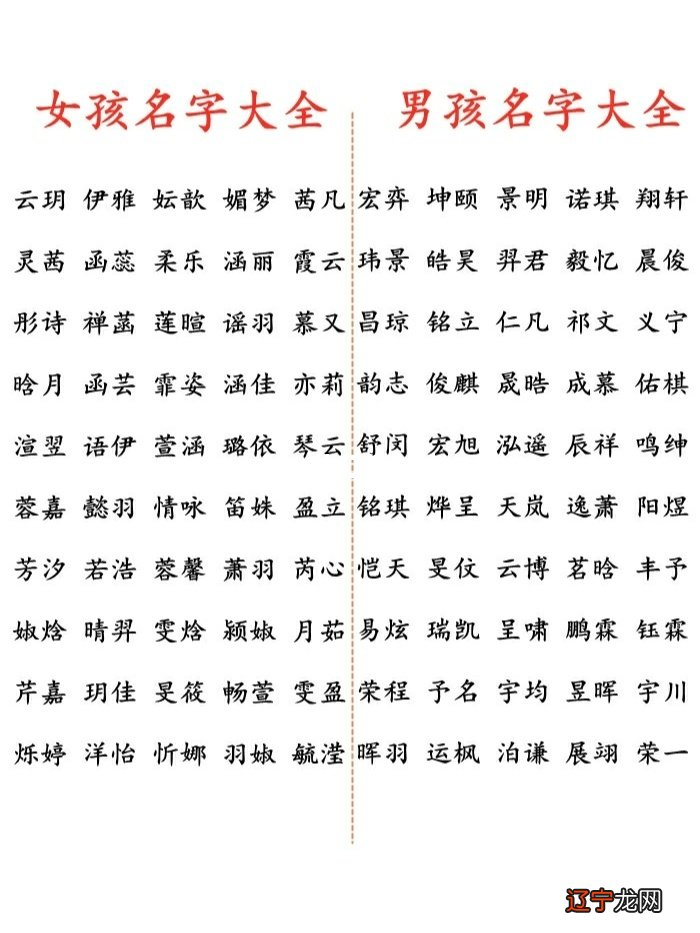 女孩名字大全
云玥 伊雅 妘歆 媚梦 茜凡
灵茜 函蕊 柔乐 涵丽 霞云
彤诗 禅菡 莲暄 谣羽 慕又
晗月 函芸 霏姿 涵佳 亦莉
渲翌 语伊 萱涵 璐依 琴云
蓉嘉 懿羽 情咏 笛姝 盈立
芳汐 若浩 蓉馨 萧羽 芮心
婌焓 晴羿 雯焓 颍婌 月茹
芹嘉 玥佳 旻筱 畅萱 雯盈
烁婷 洋怡 忻娜 羽婌 毓滢
男孩名字大全
宏弈 坤颐 景明 诺琪 翔轩
玮景 皓昊 羿君 毅忆 晨俊
昌琼 铭立 仁凡 祁文 义宁
韵志 俊麒 晟晧 成慕 佑棋
舒闵 宏旭 泓遥 辰祥 鸣绅
铭琪 烨呈 天岚 逸萧 阳煜
恺天 旻伩 云博 茗晗 丰予
易炫 瑞凯 呈啸 鹏霖 钰霖
荣程 予名 宇均 昱晖 宇川
晖羽 运枫 泊谦 展翊 荣一
辽宁龙网